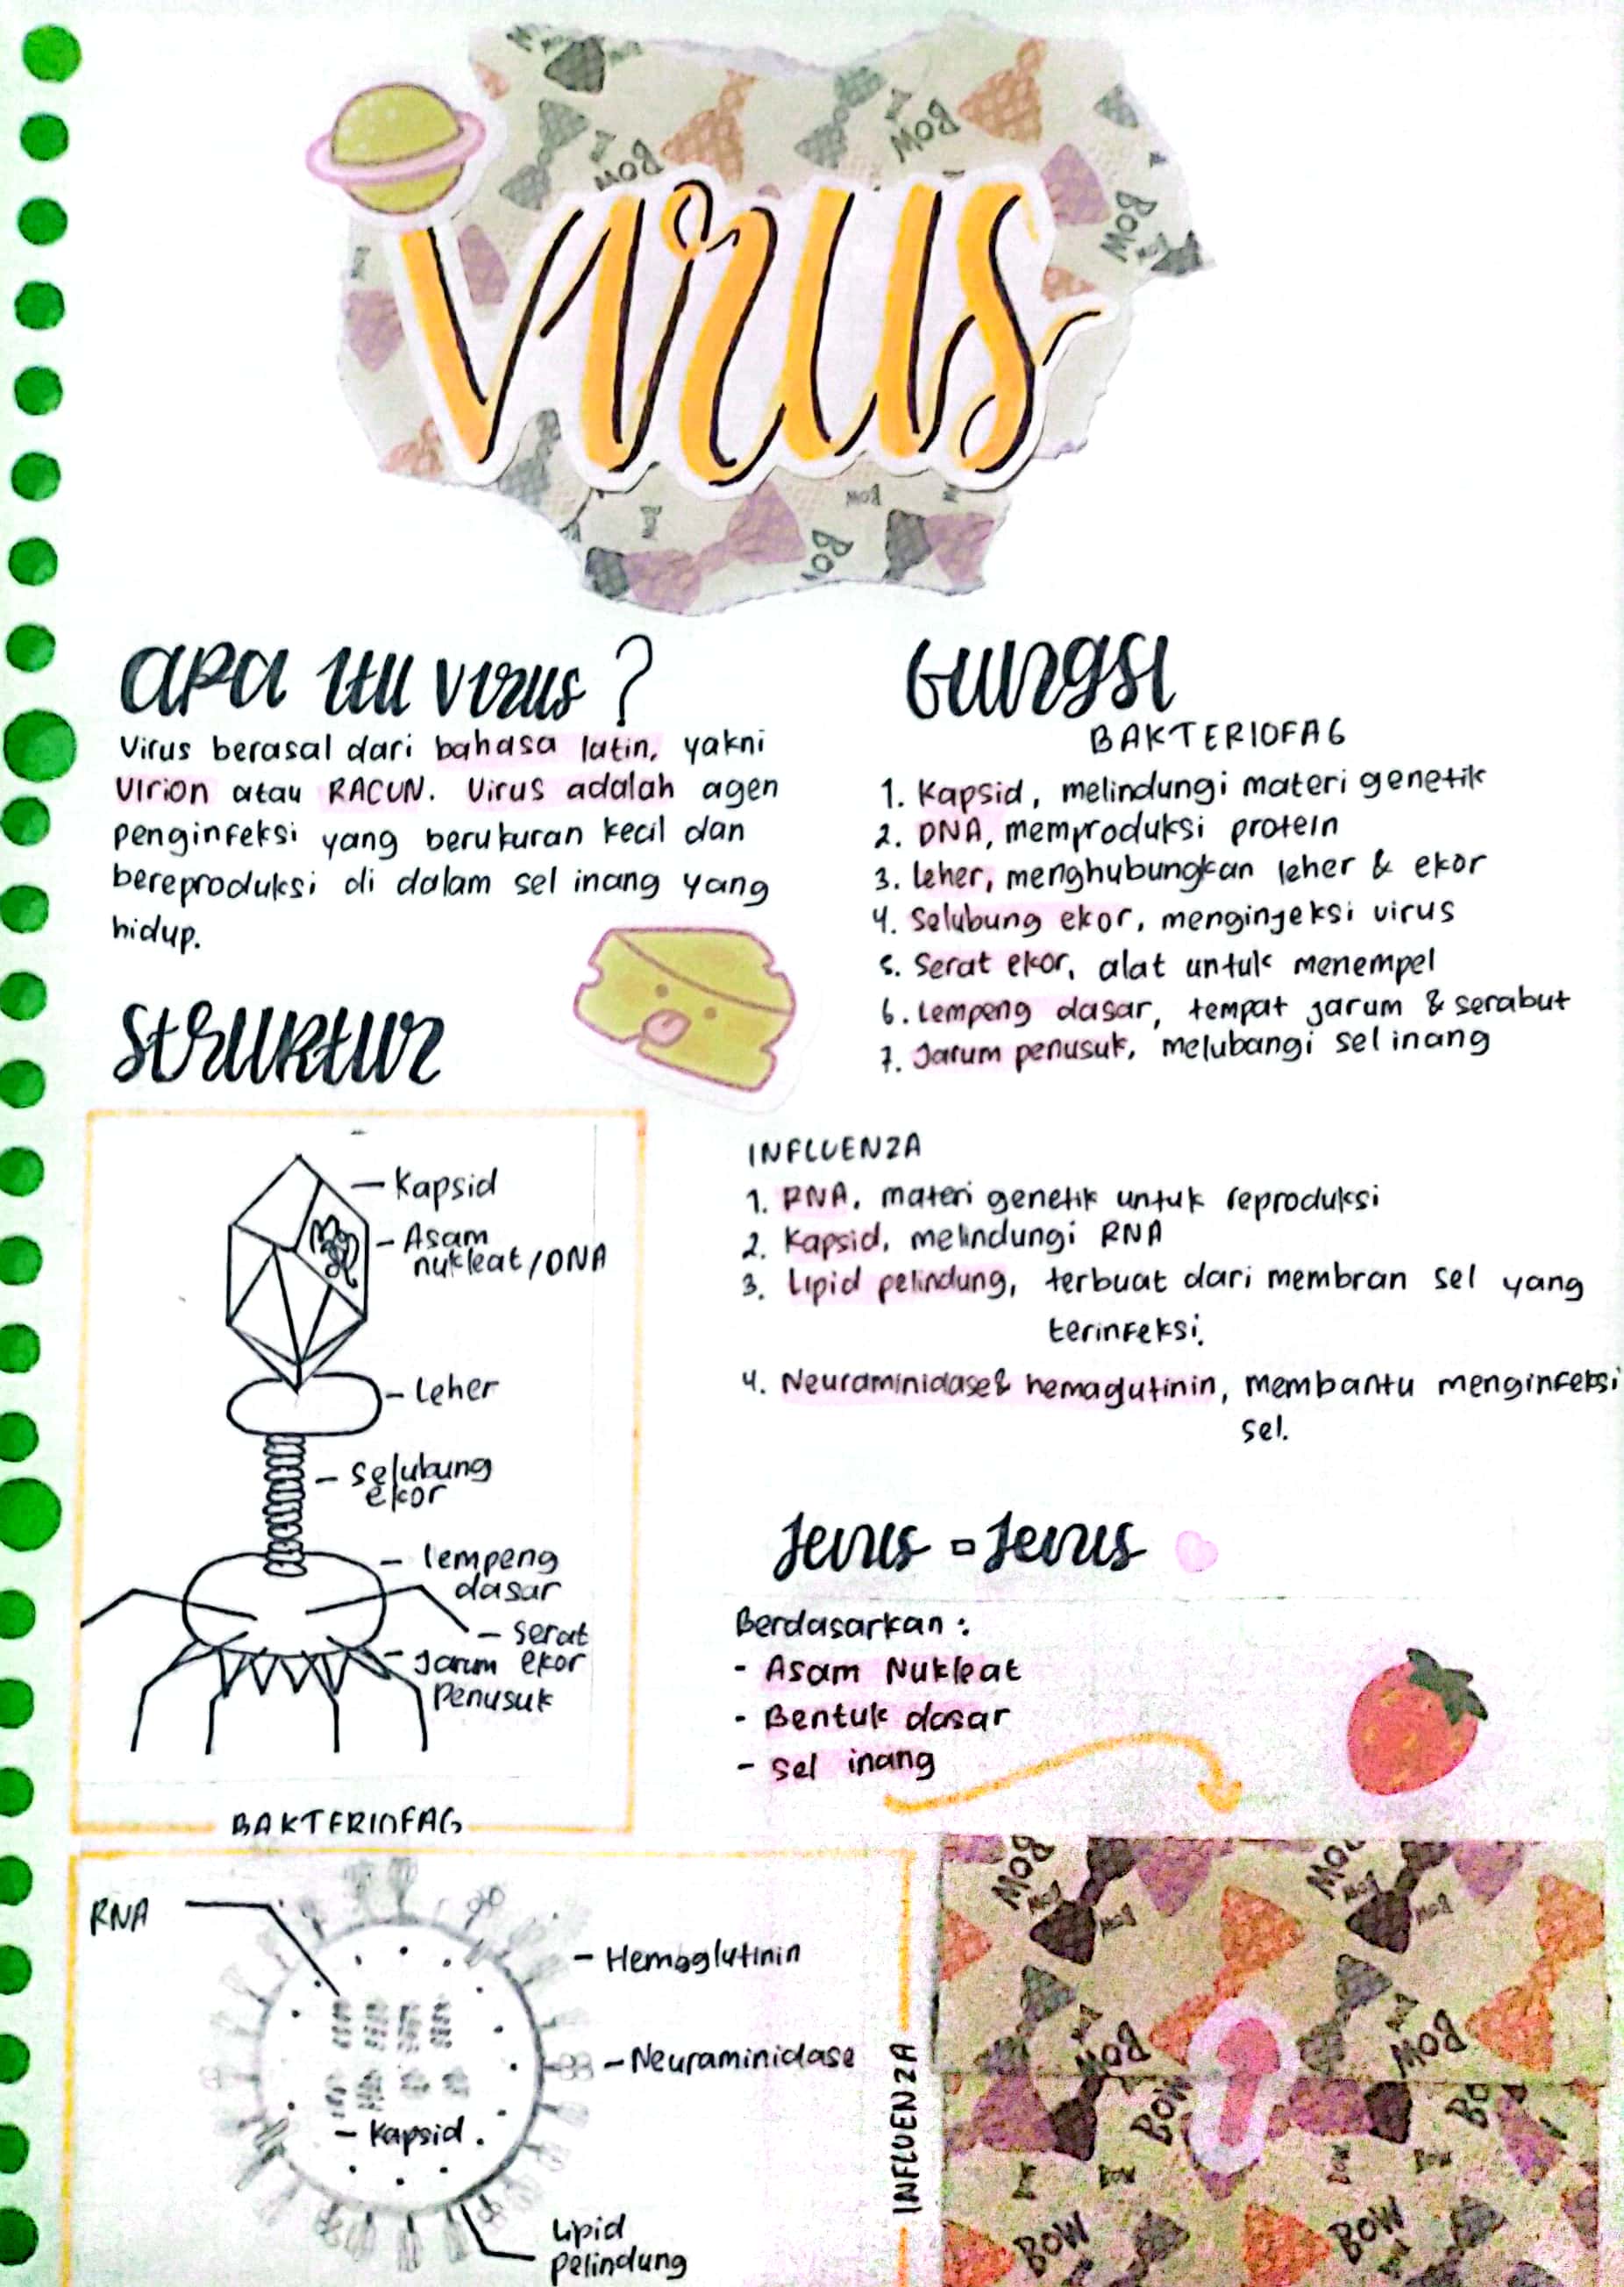 virus
apa itu virus ?
Virus berasal dari bahasa latin, yakni
Virion atau RACUN. Virus adalah agen
penginfeksi yang berukuran kecil dan
bereproduksi di dalam sel inang yang
hidup.
Struktur
Kapsid
Asam
nukleat/DNA
Leher
Selubung
ekor
lempeng
dasar
serat
ekor
Jarum
penusuk
BAKTERIOFAG
RNA
Hemaglutinin
Neuraminidase
Kapsid
Lipid
pelindung
INFLUENZA
Fungsi
BAKTERIOFAG
1. Kapsid, melindungi materi genetik
2. DNA, memproduksi protein
3. Leher, menghubungkan leher & ekor
4. Selubung ekor, menginjeksi virus
5. Serat ekor, alat untuk menempel
6. Lempeng dasar, tempat jarum & serabut
7. Jarum penusuk, melubangi sel inang
INFLUENZA
1. RNA, materi genetik untuk reproduksi
2. Kapsid, melindungi RNA
3. Lipid pelindung, terbuat dari membran sel yang
terinfeksi.
4. Neuraminidase & hemagutinin, membantu menginfeksi
sel.
Jenis - Jenis
Berdasarkan :
- Asam Nukleat
- Bentuk dasar
- Sel inang
BOW
BOW
BOW
BOW
BOW
BOW
BOW
BOW
BOW
BOW
BOW
BOW